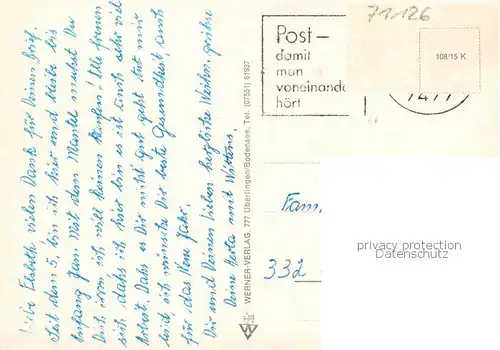 Liebe Elsbeth vielen Dank für Deinen Brief.
Seit den 5. bin ich hier und bleibe bis
Anfang Jan. Mit dem Mantel mußt Du
ich will keinen kaufen! Alle freuen
sich daß ich hier bin es ist auch sehr viel
Arbeit. Daß es Dir nicht gut geht tut mir
leid, ich wünsche Dir beste Gesundheit, auch
für das Neue Jahr.
Dir und Deinen Lieben herzliche Weihn. grüße
Deine Herta mit
WERNER-VERLAG, 777 Überlingen/Bodensee, Tel. (07551) 61937
Post –
damit
man
voneinander
hört
71126
108/15 K
Fam.
332
privacy protection
Datenschutz